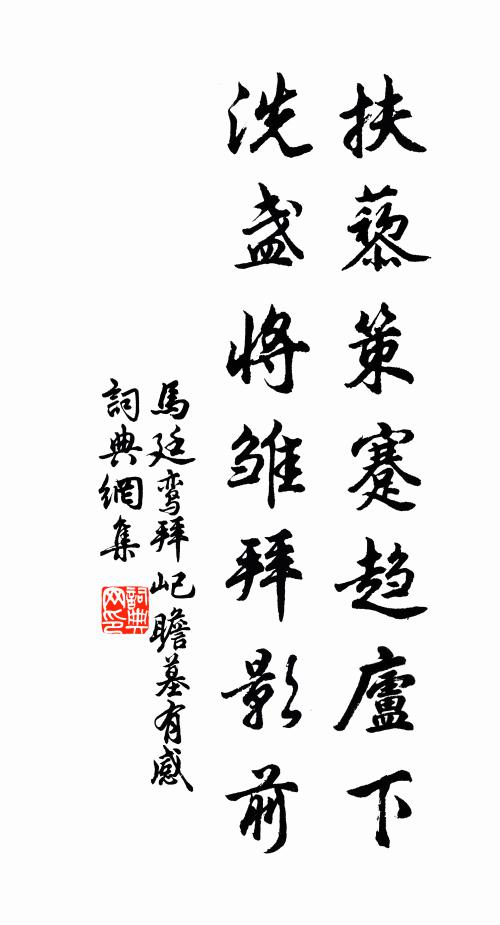 扶藜策蹇趋廬下
洗盏將雏拜影前
馬廷鸾拜屺瞻墓有感
詞典網集
詞典网印